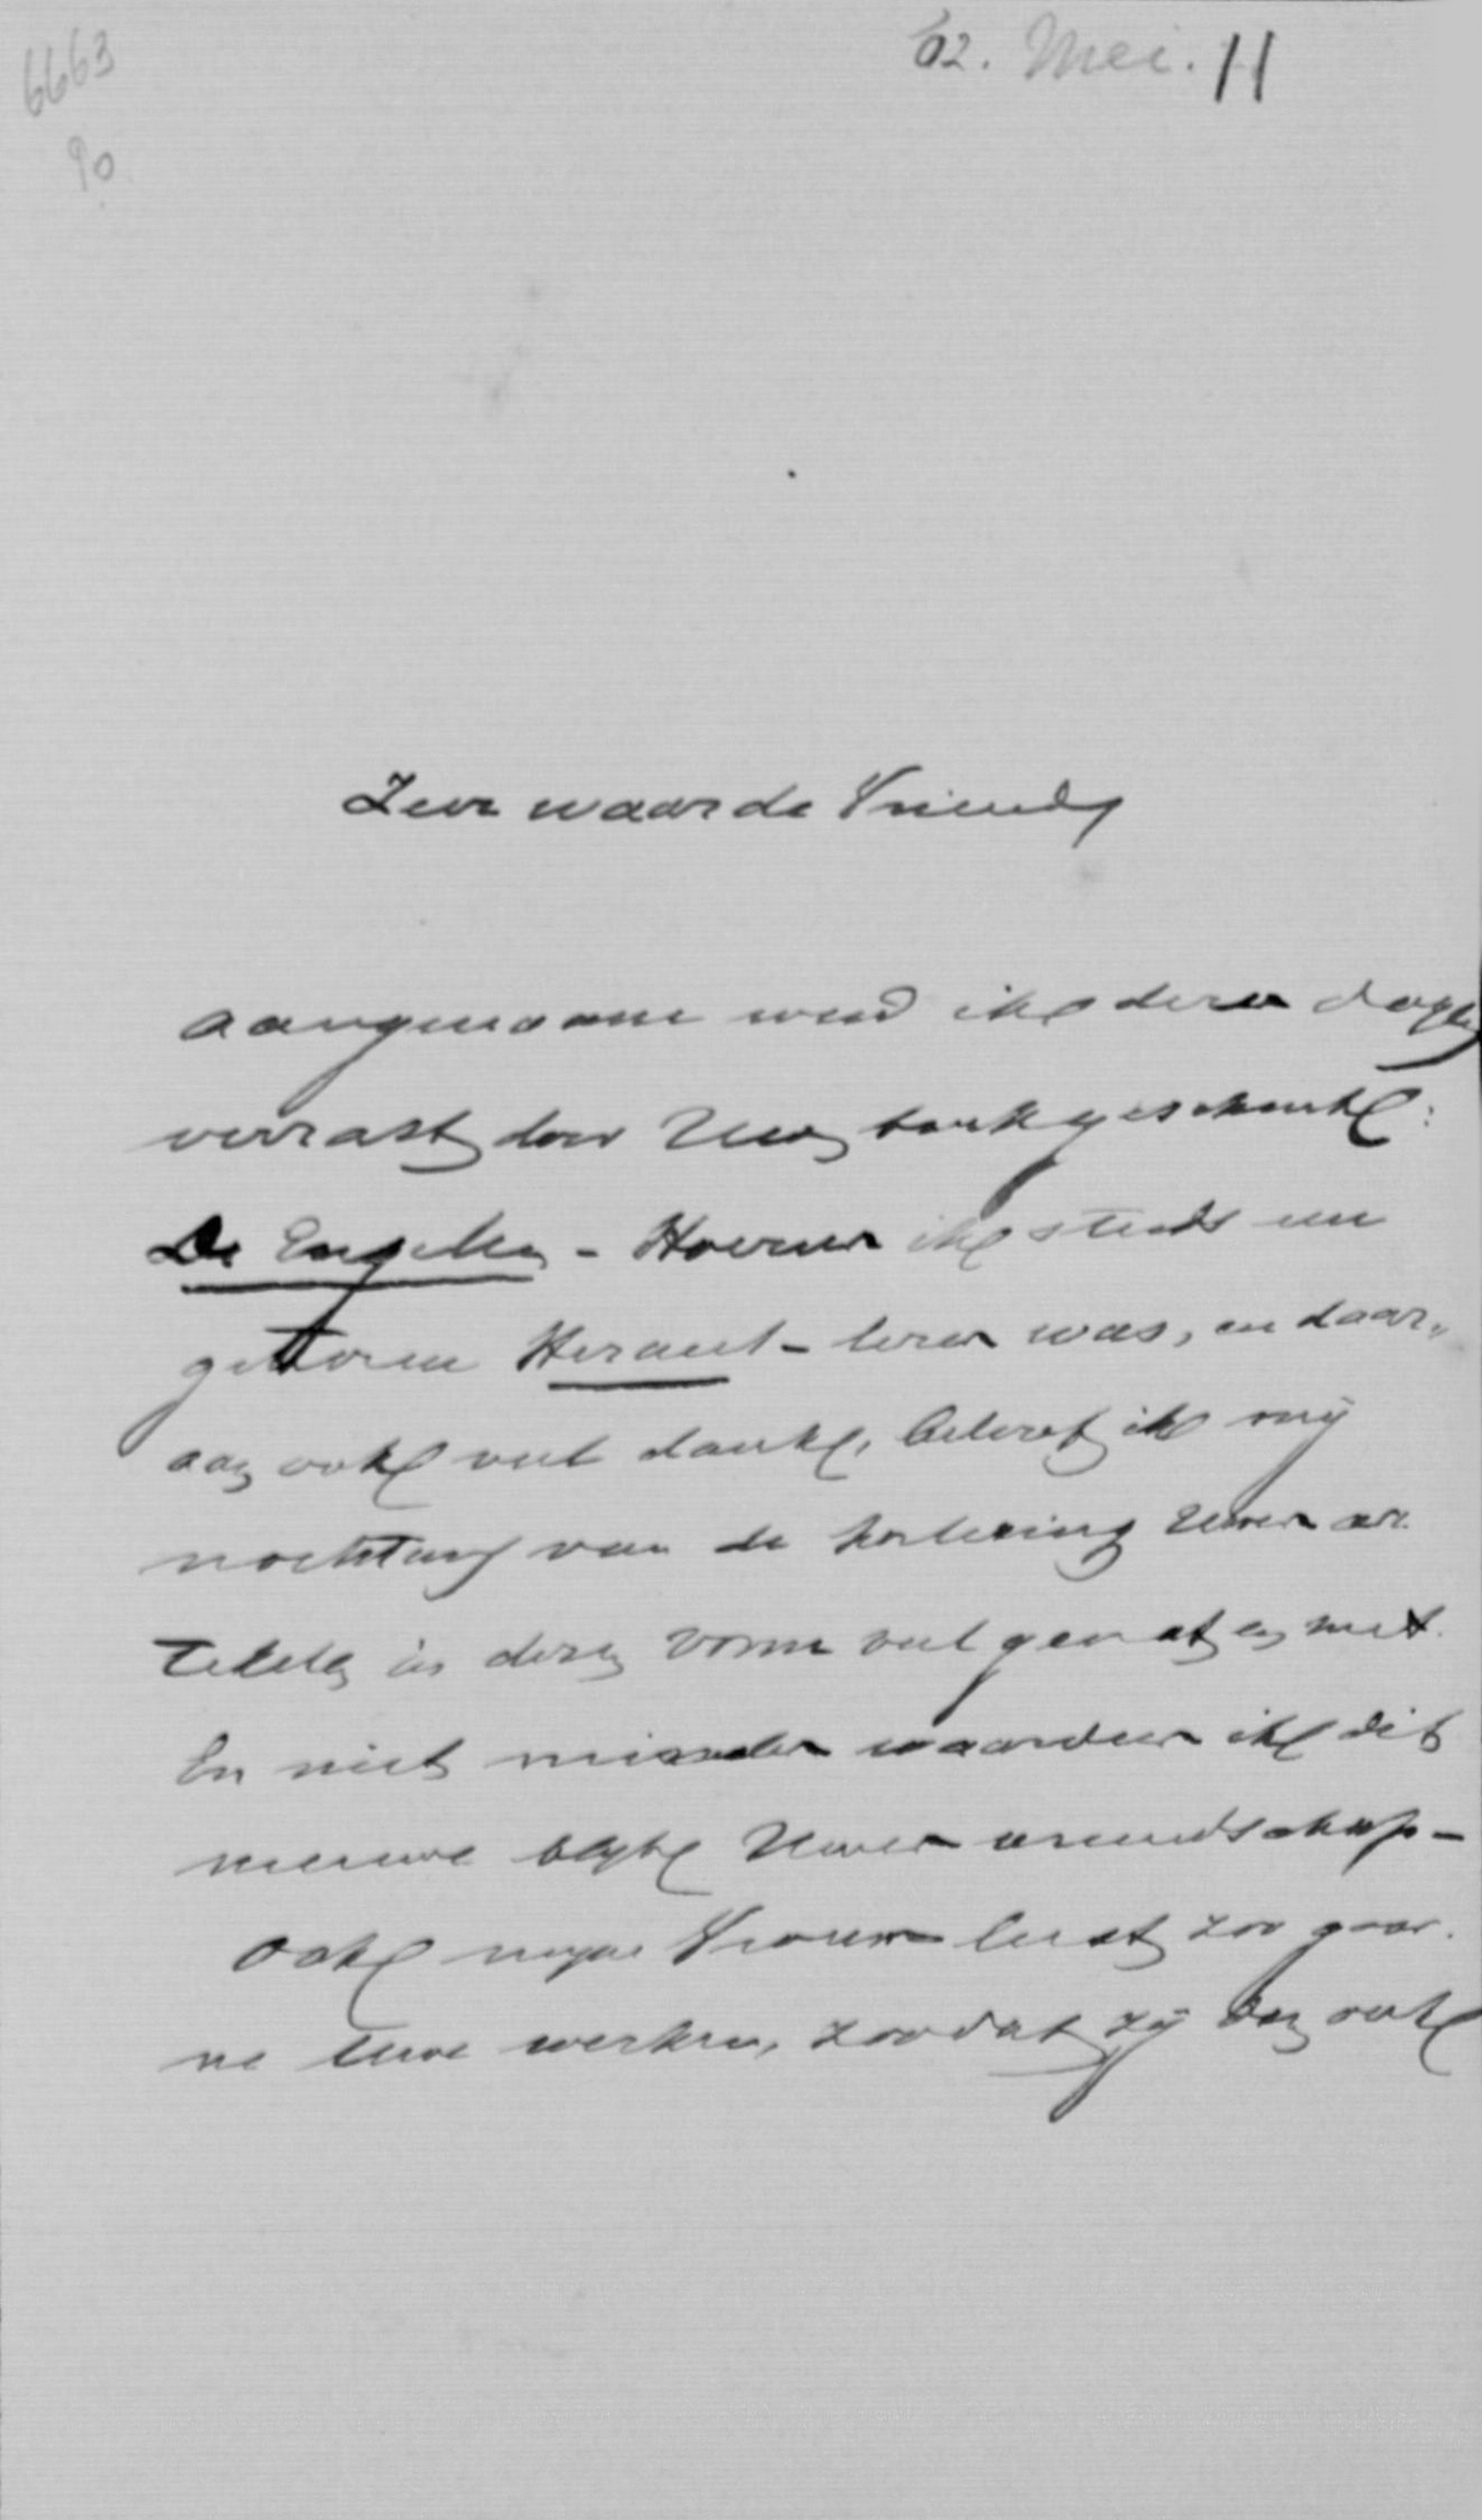 6663
90
02. Mei. 11
Zeer waarde Vriend
Aangenaam werd ik dezer dagen
verrast door Uw boekgeschenk:
De Engelen - Hoezeer ik steeds een
getrouw Heraut-lezer was, en daar„
aan ook veel dank, beloof ik mij
nochtans van de herlezing Uwer ar
tikelen in dezen vorm veel genot en nut.
En niet minder waardeer ik dit
nieuwe blijk Uwer vriendschap -
Ook mijne Vrouw leest zoo gaar.
ne Uwe werken, zoodat zij ook